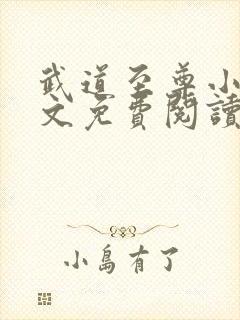 武道至尊小
文免費閱讀
小島有了